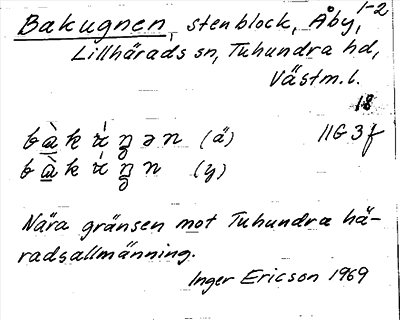 Bakugnen, stenblock, Åby, 1-2
Lillhärads sn, Tuhundra hd,
Västm. l.
18
bàkúŋən (ä) 11G 3f
bàkúŋn (y)
Nära gränsen mot Tuhundra hä-
radsallmänning.
Inger Ericson 1969